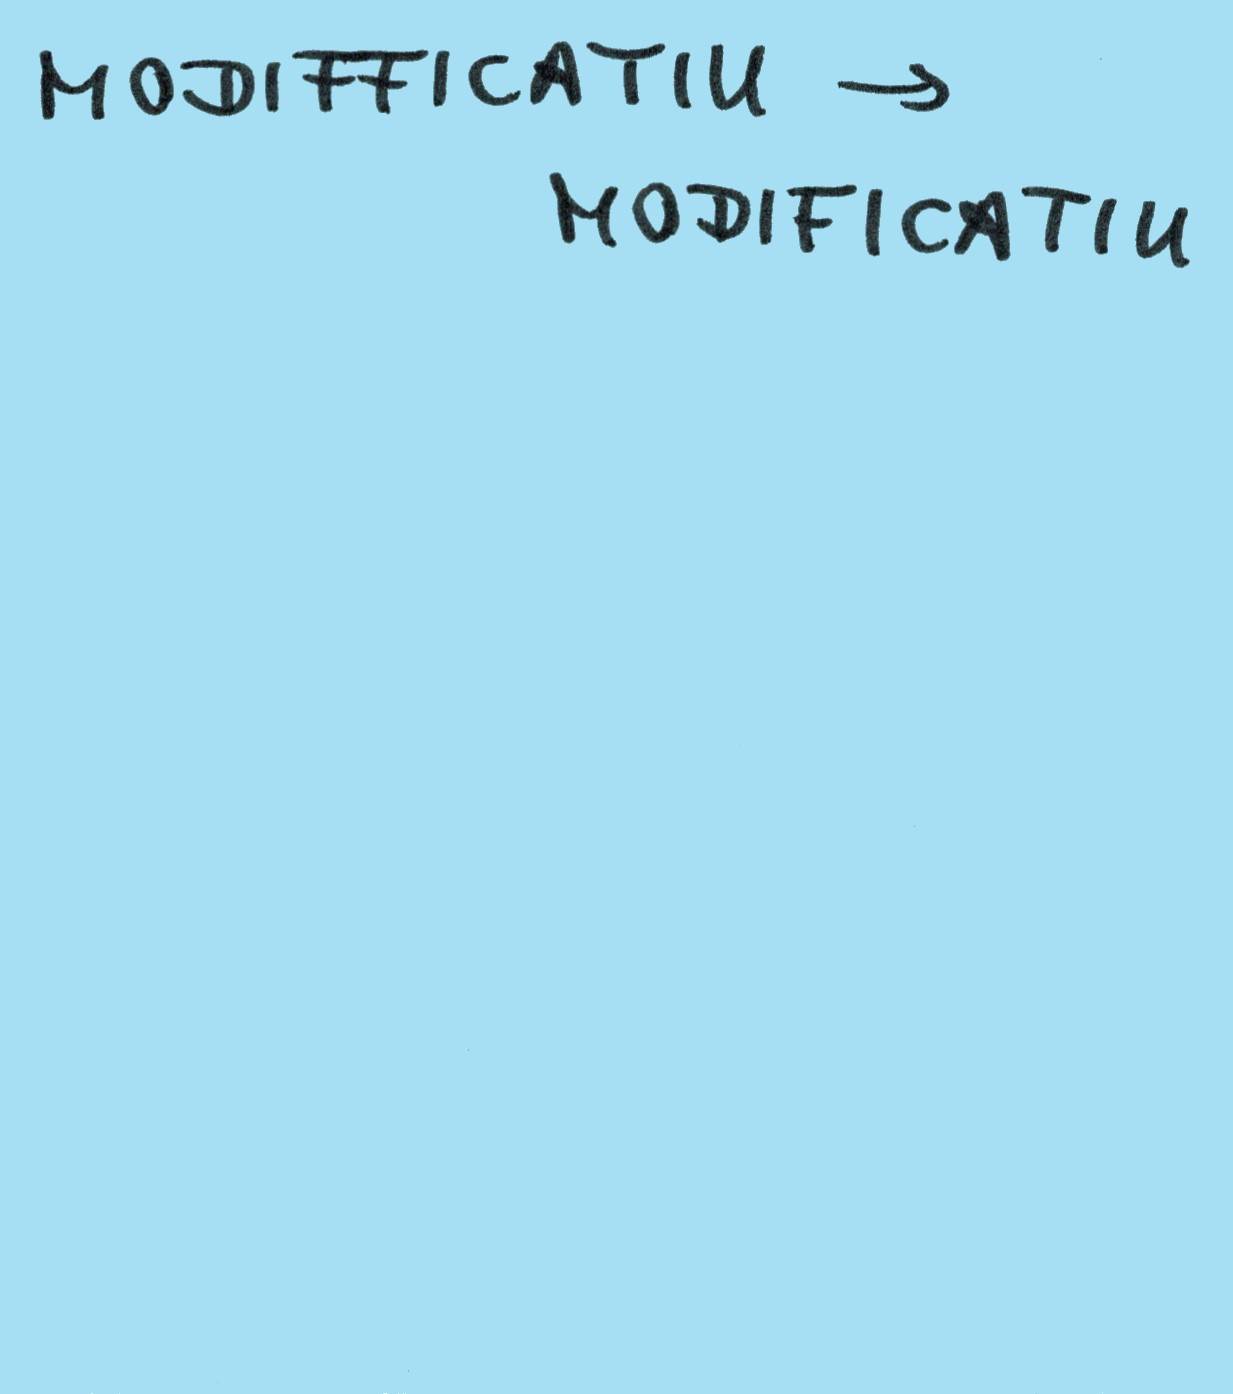 MODIFFICATIU →
MODIFICATIU